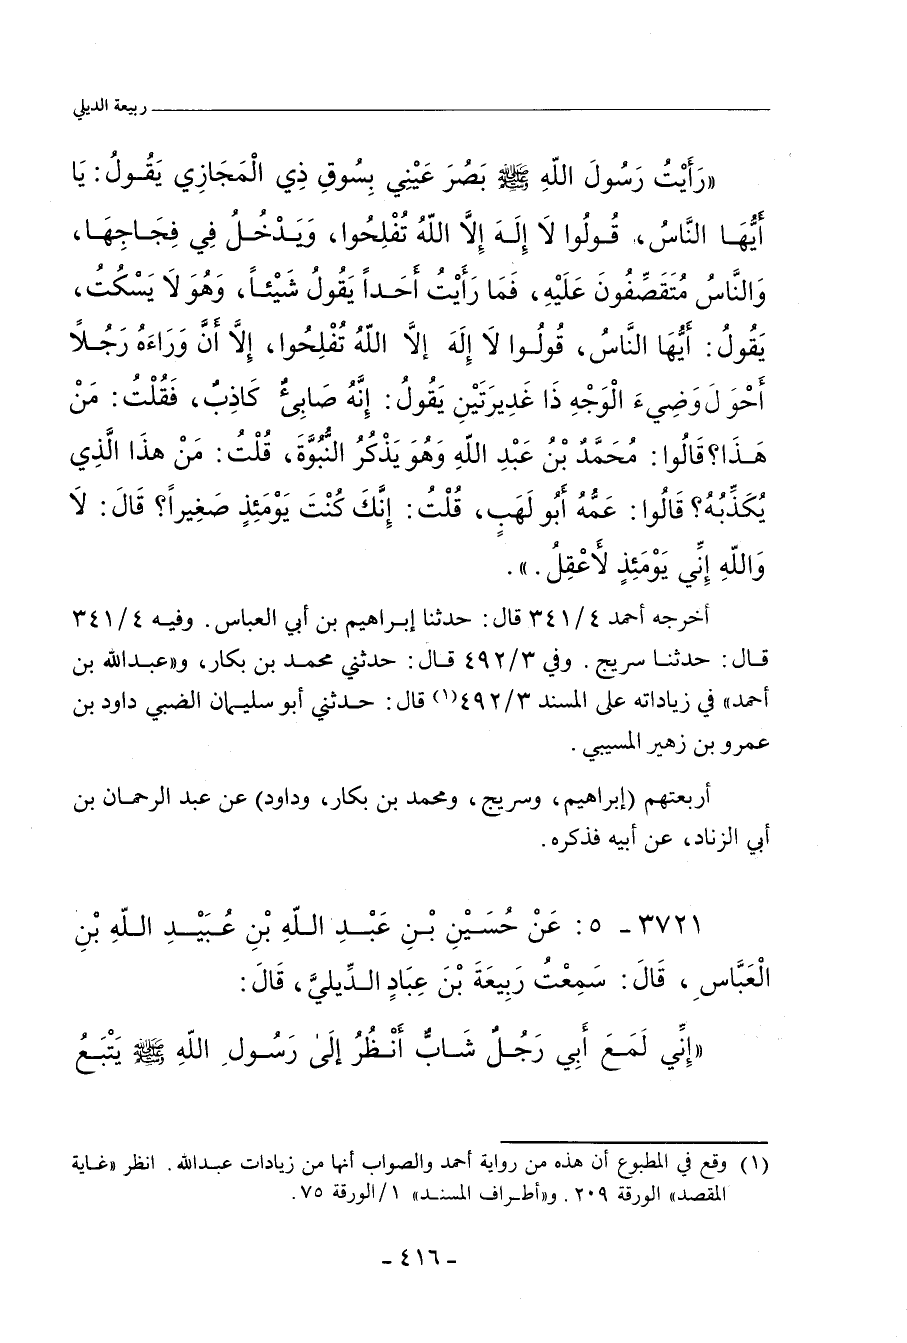 ربيعة الديلي
«رَأَيْتُ رَسُولَ اللّهِ ﷺ بَصُرَ عَيْنِي بِسُوقِ ذِي الْمَجَازِي يَقُولُ: يَا
أَيُّهَا النَّاسُ، قُولُوا لَا إِلَهَ إِلَّا اللّهُ تُفْلِحُوا، وَيَدْخُلُ فِي فِجَاجِهَا،
وَالنَّاسُ مُتَقَصِّفُونَ عَلَيْهِ، فَمَا رَأَيْتُ أَحَداً يَقُولُ شَيْئاً، وَهُوَ لَا يَسْكُتُ،
يَقُولُ: أَيُّهَا النَّاسُ، قُولُوا لَا إِلَهَ إلَّا اللّهُ تُفْلِحُوا، إِلَّا أَنَّ وَرَاءَهُ رَجُلاً
أَحْوَلَ وَضِيءَ الْوَجْهِ ذَا غَدِيرَتَيْنِ يَقُولُ: إِنَّهُ صَابِىءٌ كَاذِبٌ، فَقُلْتُ: مَنْ
هَذَا؟ قَالُوا: مُحَمَّدُ بْنُ عَبْدِ اللّهِ وَهُوَ يَذْكُرُ النُّبُوَّةَ، قُلْتُ: مَنْ هذَا الَّذِي
يُكَذِّبُهُ؟ قَالُوا: عَمُّهُ أَبُو لَهَبٍ، قُلْتُ: إِنَّكَ كُنْتَ يَوْمَئِذٍ صَغِيراً؟ قَالَ: لَا
وَاللّهِ إِنِّي يَوْمَئِذٍ لَأَعْقِلُ.».
أخرجه أحمد ٣٤١/٤ قال: حدثنا إبراهيم بن أبي العباس. وفيه ٣٤١/٤
قال: حدثنا سريج. وفي ٤٩٢/٣ قال: حدثني محمد بن بكار، و«عبدالله بن
أحمد» في زياداته على المسند ٤٩٢/٣(١) قال: حدثني أبو سليمان الضبي داود بن
عمرو بن زهير المسيبي.
أربعتهم (إبراهيم، وسريج، ومحمد بن بكار، وداود) عن عبد الرحمان بن
أبي الزناد، عن أبيه فذكره.
٣٧٢١ - ٥: عَنْ حُسَيْنِ بْنِ عَبْدِ اللّهِ بْنِ عُبَيْدِ اللّهِ بْنِ
الْعَبَّاسِ، قَالَ: سَمِعْتُ رَبِيعَةَ بْنَ عِبَادٍ الدِّيلِيَّ، قَالَ:
«إِنِّي لَمَعَ أَبِي رَجُلٌ شَابٌّ أَنْظُرُ إِلَىٰ رَسُولِ اللّهِ ﷺ يَتْبَعُ
(١) وقع في المطبوع أن هذه من رواية أحمد والصواب أنها من زيادات عبدالله. انظر «غاية
المقصد» الورقة ٢٠٩. و«أطراف المسند» ١/الورقة ٧٥.
- ٤١٦ -